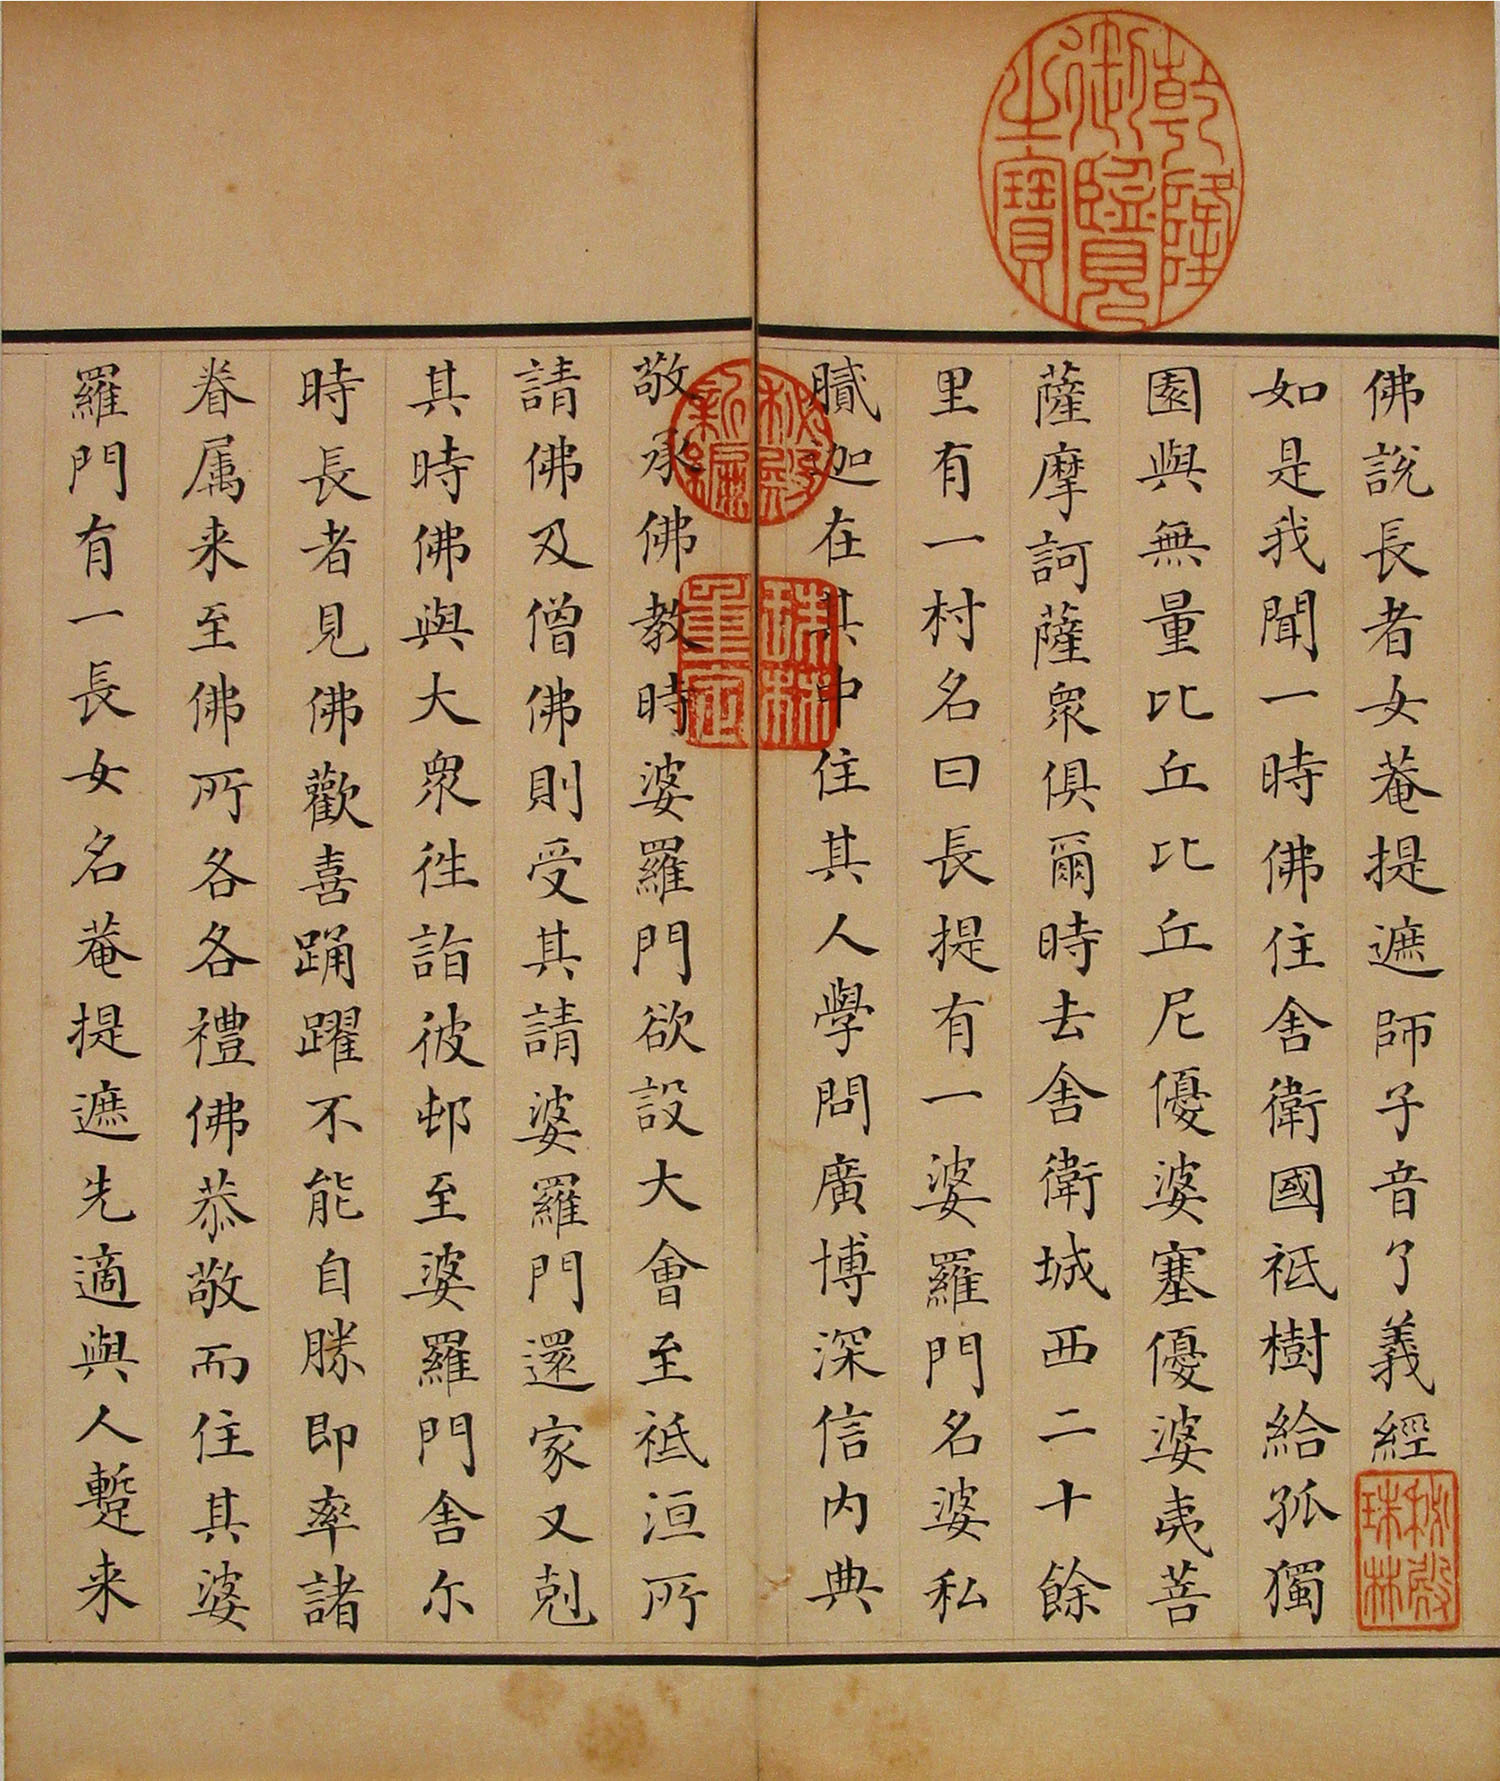 佛說長者女菴提遮師子吼了義經
如是我聞一時佛住舍衛國祇樹給孤獨
園與無量比丘比丘尼優婆塞優婆夷菩
薩摩訶薩眾俱爾時去舍衛城西二十餘
里有一村名曰長提有一婆羅門名婆私
膩迦在其中住其人學問廣博深信內典
敬承佛教時婆羅門欲設大會至祇洹所
請佛及僧佛則受其請婆羅門還家又剋
其時佛與大眾徃詣彼邨至婆羅門舍尓
時長者見佛歡喜踊躍不能自勝即率諸
眷属来至佛所各各禮佛恭敬而住其婆
羅門有一長女名菴提遮先適與人蹔来
乾隆御覽之寶
秘殿新編
珠林重定
秘殿珠林